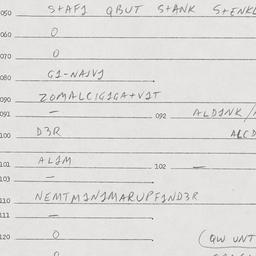 050 S+AFI QBUT S+ANK S+ENKL
060 0
070 0
080 G1-NAJVJ
090 ZOMALCIGIGA+VIT
091 — 092 ALDINK/
100 D3R ALCD
101 ALJM 102 —
103 —
110 NEMTMINIMARUPFIND3R
111 —
120 0 (QW UNT
0